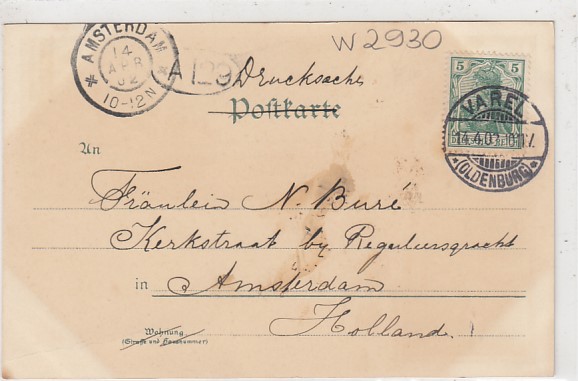 W 2930
AMSTERDAM
14
APR
02
10-12N
A 129
Drucksache
Postkarte
5 5
VAREL
14.4.02.10-11V.
*(OLDENBURG)*
An
Fräulein N. Buré
Kerkstraat by Reguliersgracht
in Amsterdam
Holland.
Wohnung
(Straße und Hausnummer)